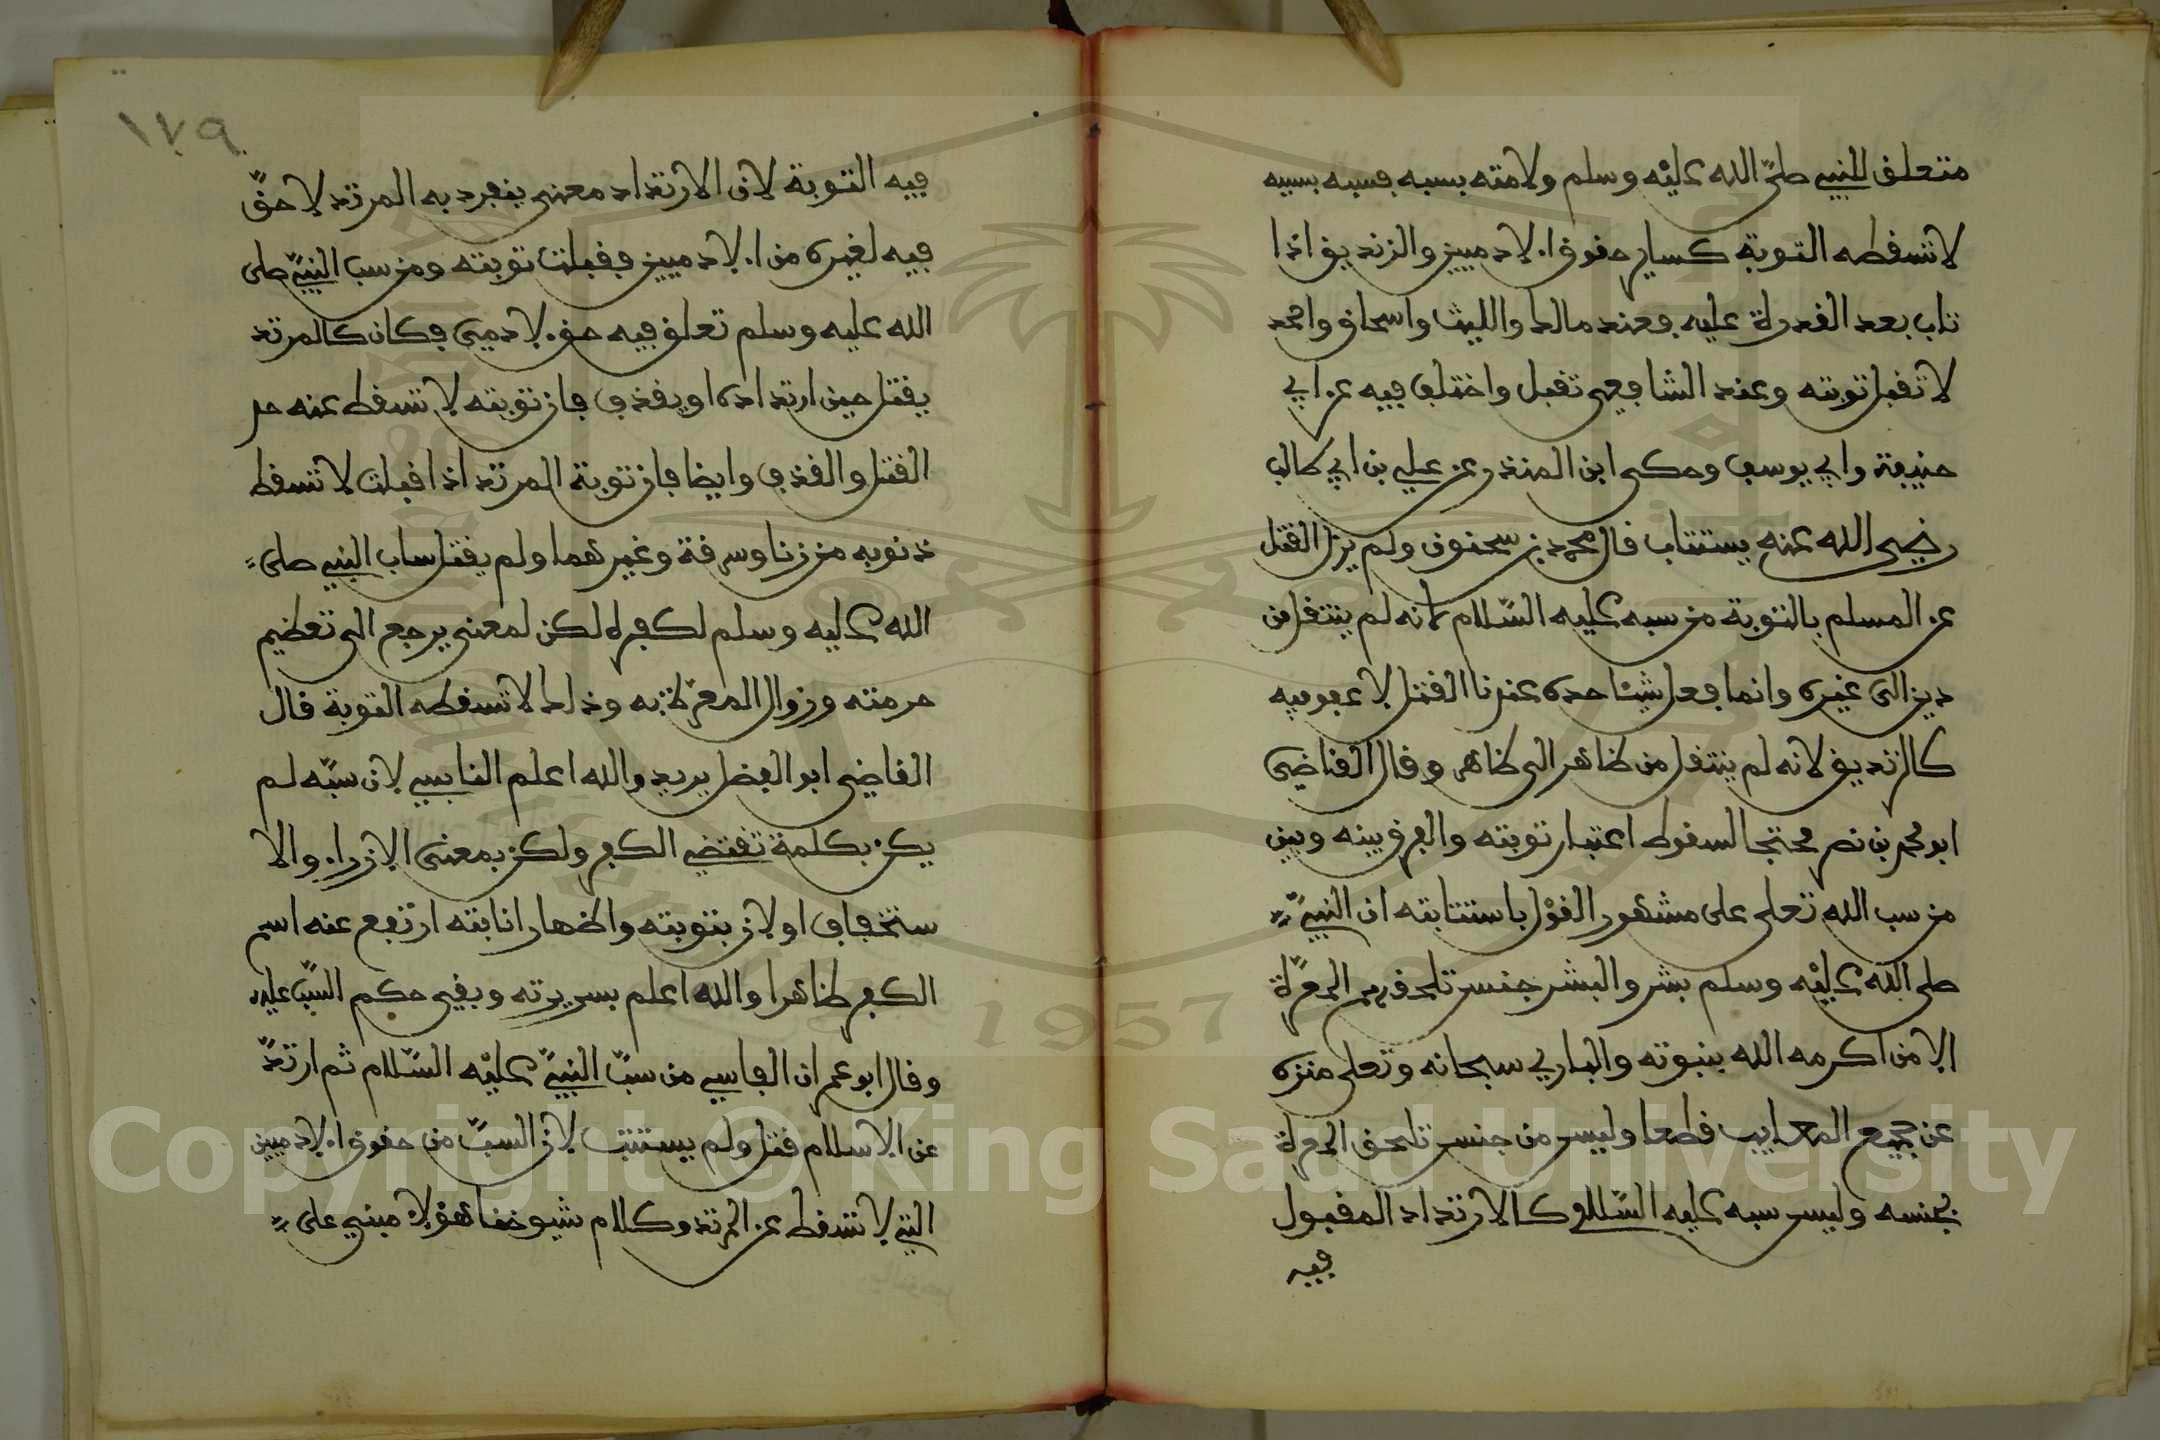 متعلق للنبي صلى الله عليه وسلم ولامته بسببه فسبه بسببه
لا تسقطه التوبة كساير حقوق الادميين والزنديق اذا
تاب بعد القدرة عليه فعند مالك والليث واسحاق واحمد
لا تقبل توبته وعند الشافعي تقبل واختلف فيه عن ابي
حنيفة وابي يوسف وحكى ابن المنذر عن علي بن ابي طالب
رضي الله عنه يستتاب قال محمد بن سحنون ولم يزل القتل
عن المسلم بالتوبة من سبه عليه السلام لانه لم ينتقل من
دين الى غيره وانما فعل شيئا حده عندنا القتل لا عفو فيه
كالزنديق لانه لم ينتقل من ظاهر الى ظاهر وقال القاضي
ابو محمد بن نصر محتجا لسقوط اعتبار توبته والفرق بينه وبين
من سب الله تعلى على مشهور القول باستتابته ان النبي
صلى الله عليه وسلم بشر والبشر جنس تلحقهم المعرة
الا من اكرمه الله بنبوته والباري سبحانه وتعلى منزه
عن جميع المعايب قطعا وليس من جنس تلحق المعرة
بجنسه وليس سبه عليه السلام كالارتداد المقبول
فيه
١٧٩
فيه التوبة لان الارتداد معنى ينفرد به المرتد لا حق
فيه لغيره من الادميين فقبلت توبته ومن سب النبي صلى
الله عليه وسلم تعلق فيه حق لادمي فكان كالمرتد
يقتل حين ارتداده او يقذف فان توبته لا تسقط عنه حد
القتل والقذف وايضا فان توبة المرتد اذا قبلت لا تسقط
ذنوبه من زنا وسرقة وغيرهما ولم يقتل ساب النبي صلى
الله عليه وسلم لكفره لكن لمعنى يرجع الى تعظيم
حرمته وزوال المعرة به وذلك لا تسقطه التوبة قال
القاضي ابو الفضل يريد والله اعلم القابسي لان سبه لم
يكن بكلمة تقتضي الكفر ولكن بمعنى الازراء والا
ستخفاف او لان بتوبته واظهار انابته ارتفع عنه اسم
الكفر ظاهرا والله اعلم بسريرته وبقي حكم السب عليه
وقال ابو عمران الفاسي من سب النبي عليه السلام ثم ارتد
عن الاسلام قتل ولم يستتب لان السب من حقوق الادميين
التي لا تسقط عن المرتد وكلام شيوخنا هؤلاء مبني على
Copyright © King Saud University
1957